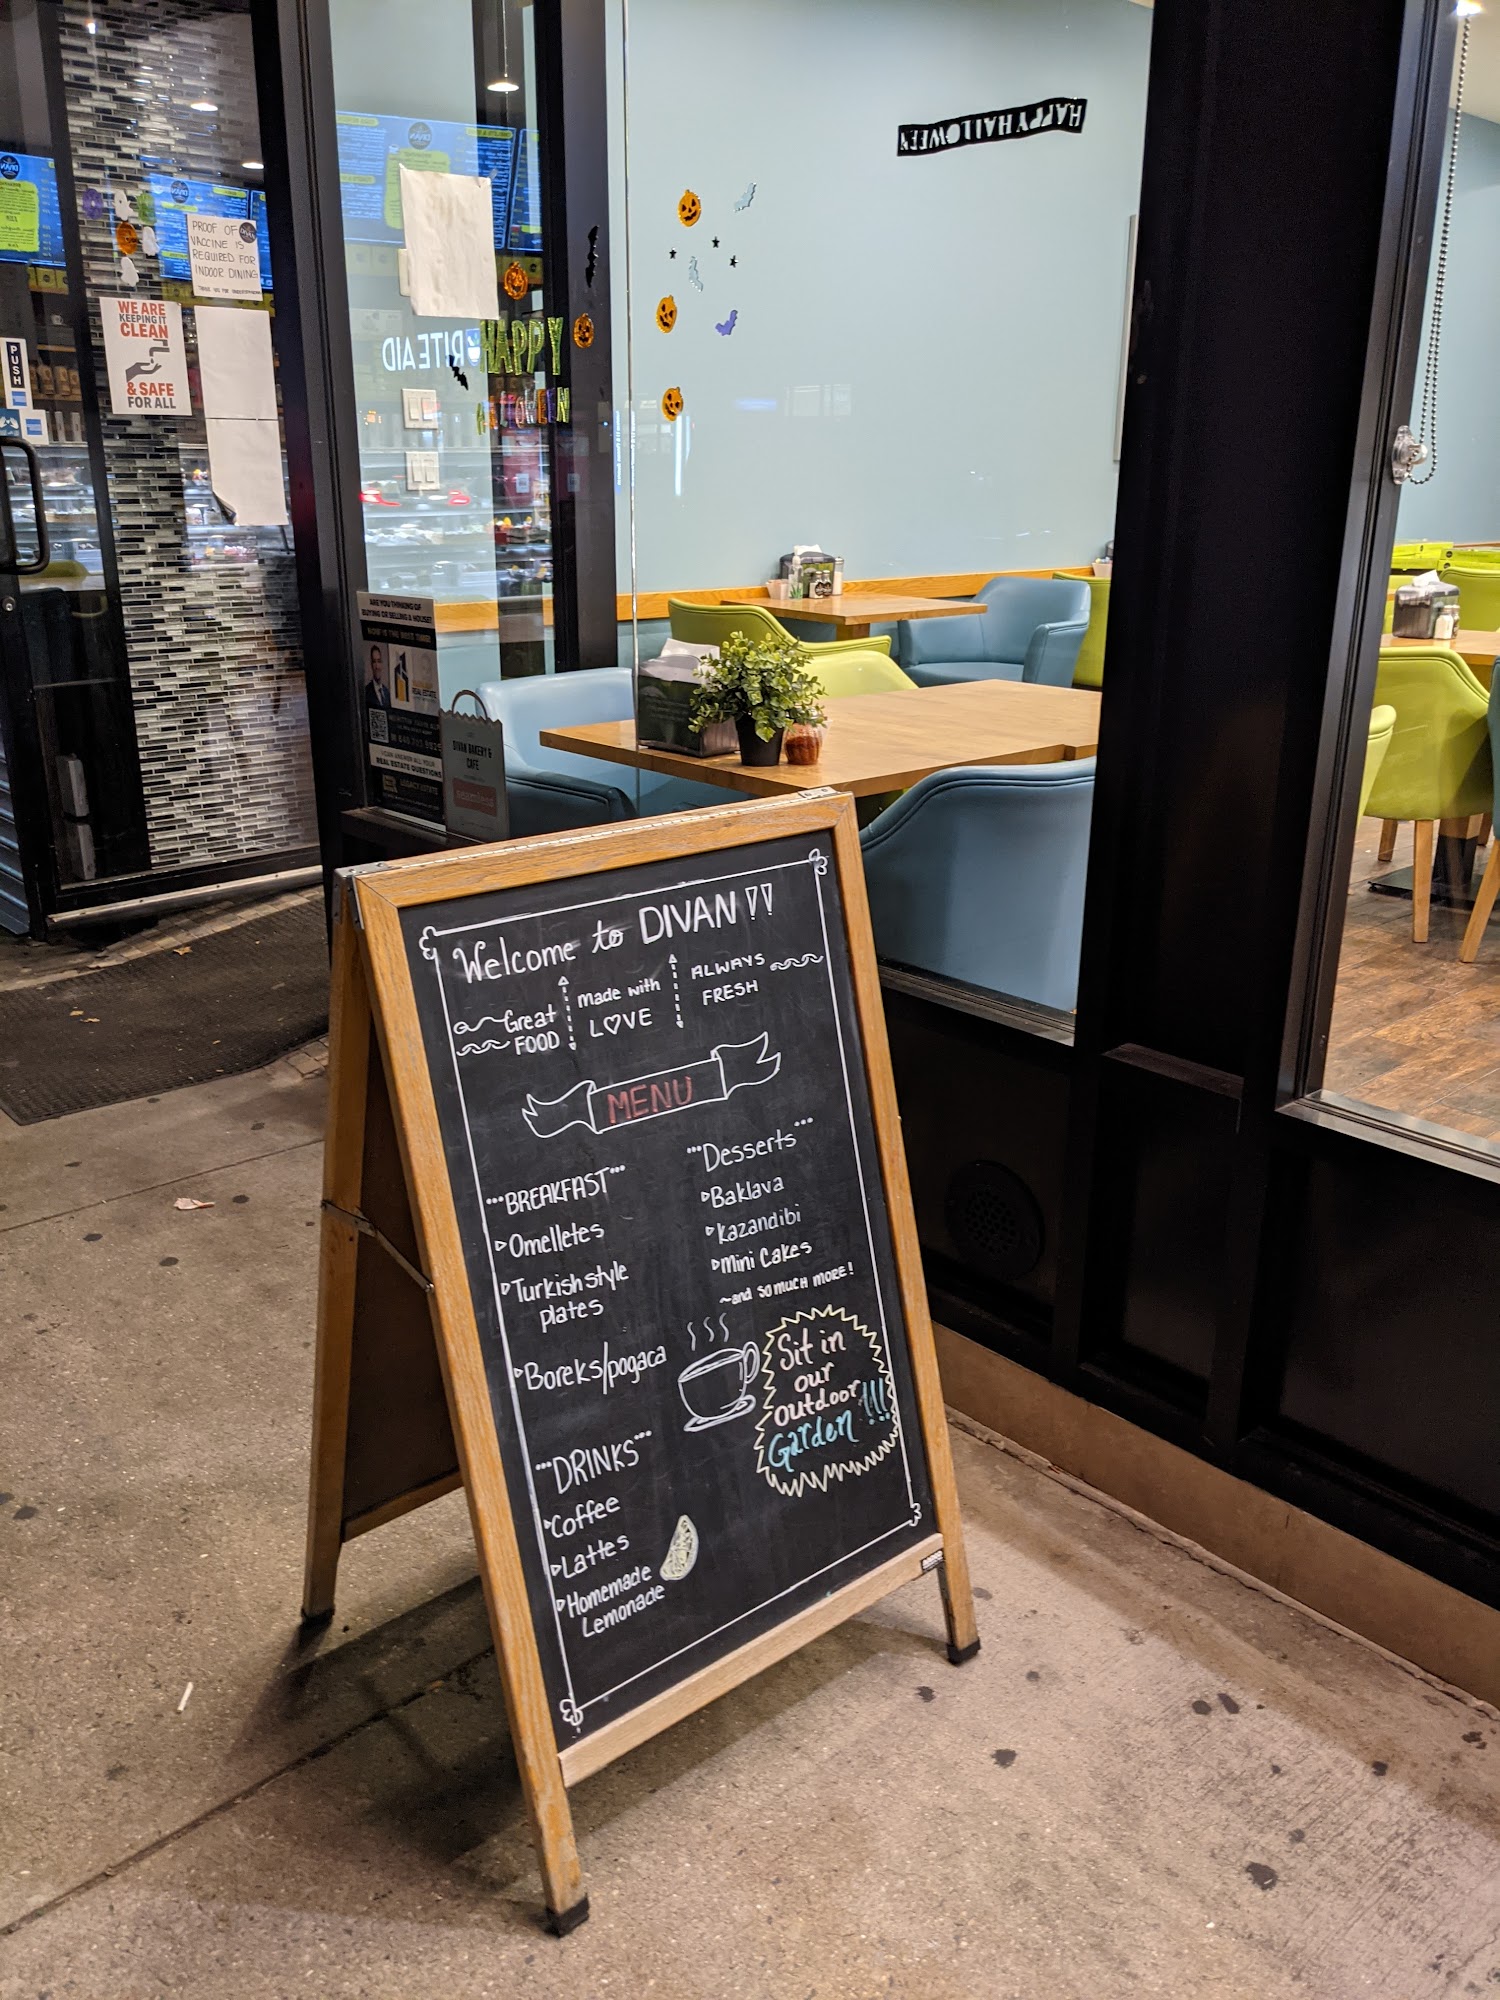 PROOF OF
VACCINE IS
REQUIRED FOR
INDOOR DINING
WE ARE
KEEPING IT
CLEAN
& SAFE
FOR ALL
PUSH
DIVAN
DIVAN
DIVAN
RITE AID
HAPPY
HALLOWEEN
HAPPY HALLOWEEN
ARE YOU THINKING OF
BUYING OR SELLING A HOUSE?
NOW IS THE BEST TIME!
REAL ESTATE
I CAN ANSWER ALL YOUR
REAL ESTATE QUESTIONS
DIVAN BAKERY &
CAFE
seamless
Welcome to DIVAN!!
Great
FOOD
made with
LOVE
ALWAYS
FRESH
MENU
BREAKFAST
Omelletes
Turkish style
plates
Boreks/pogaca
DRINKS
Coffee
Lattes
Homemade
Lemonade
Desserts
Baklava
Kazandibi
Mini Cakes
~and SO MUCH MORE!
Sit in
our
outdoor
Garden!!!